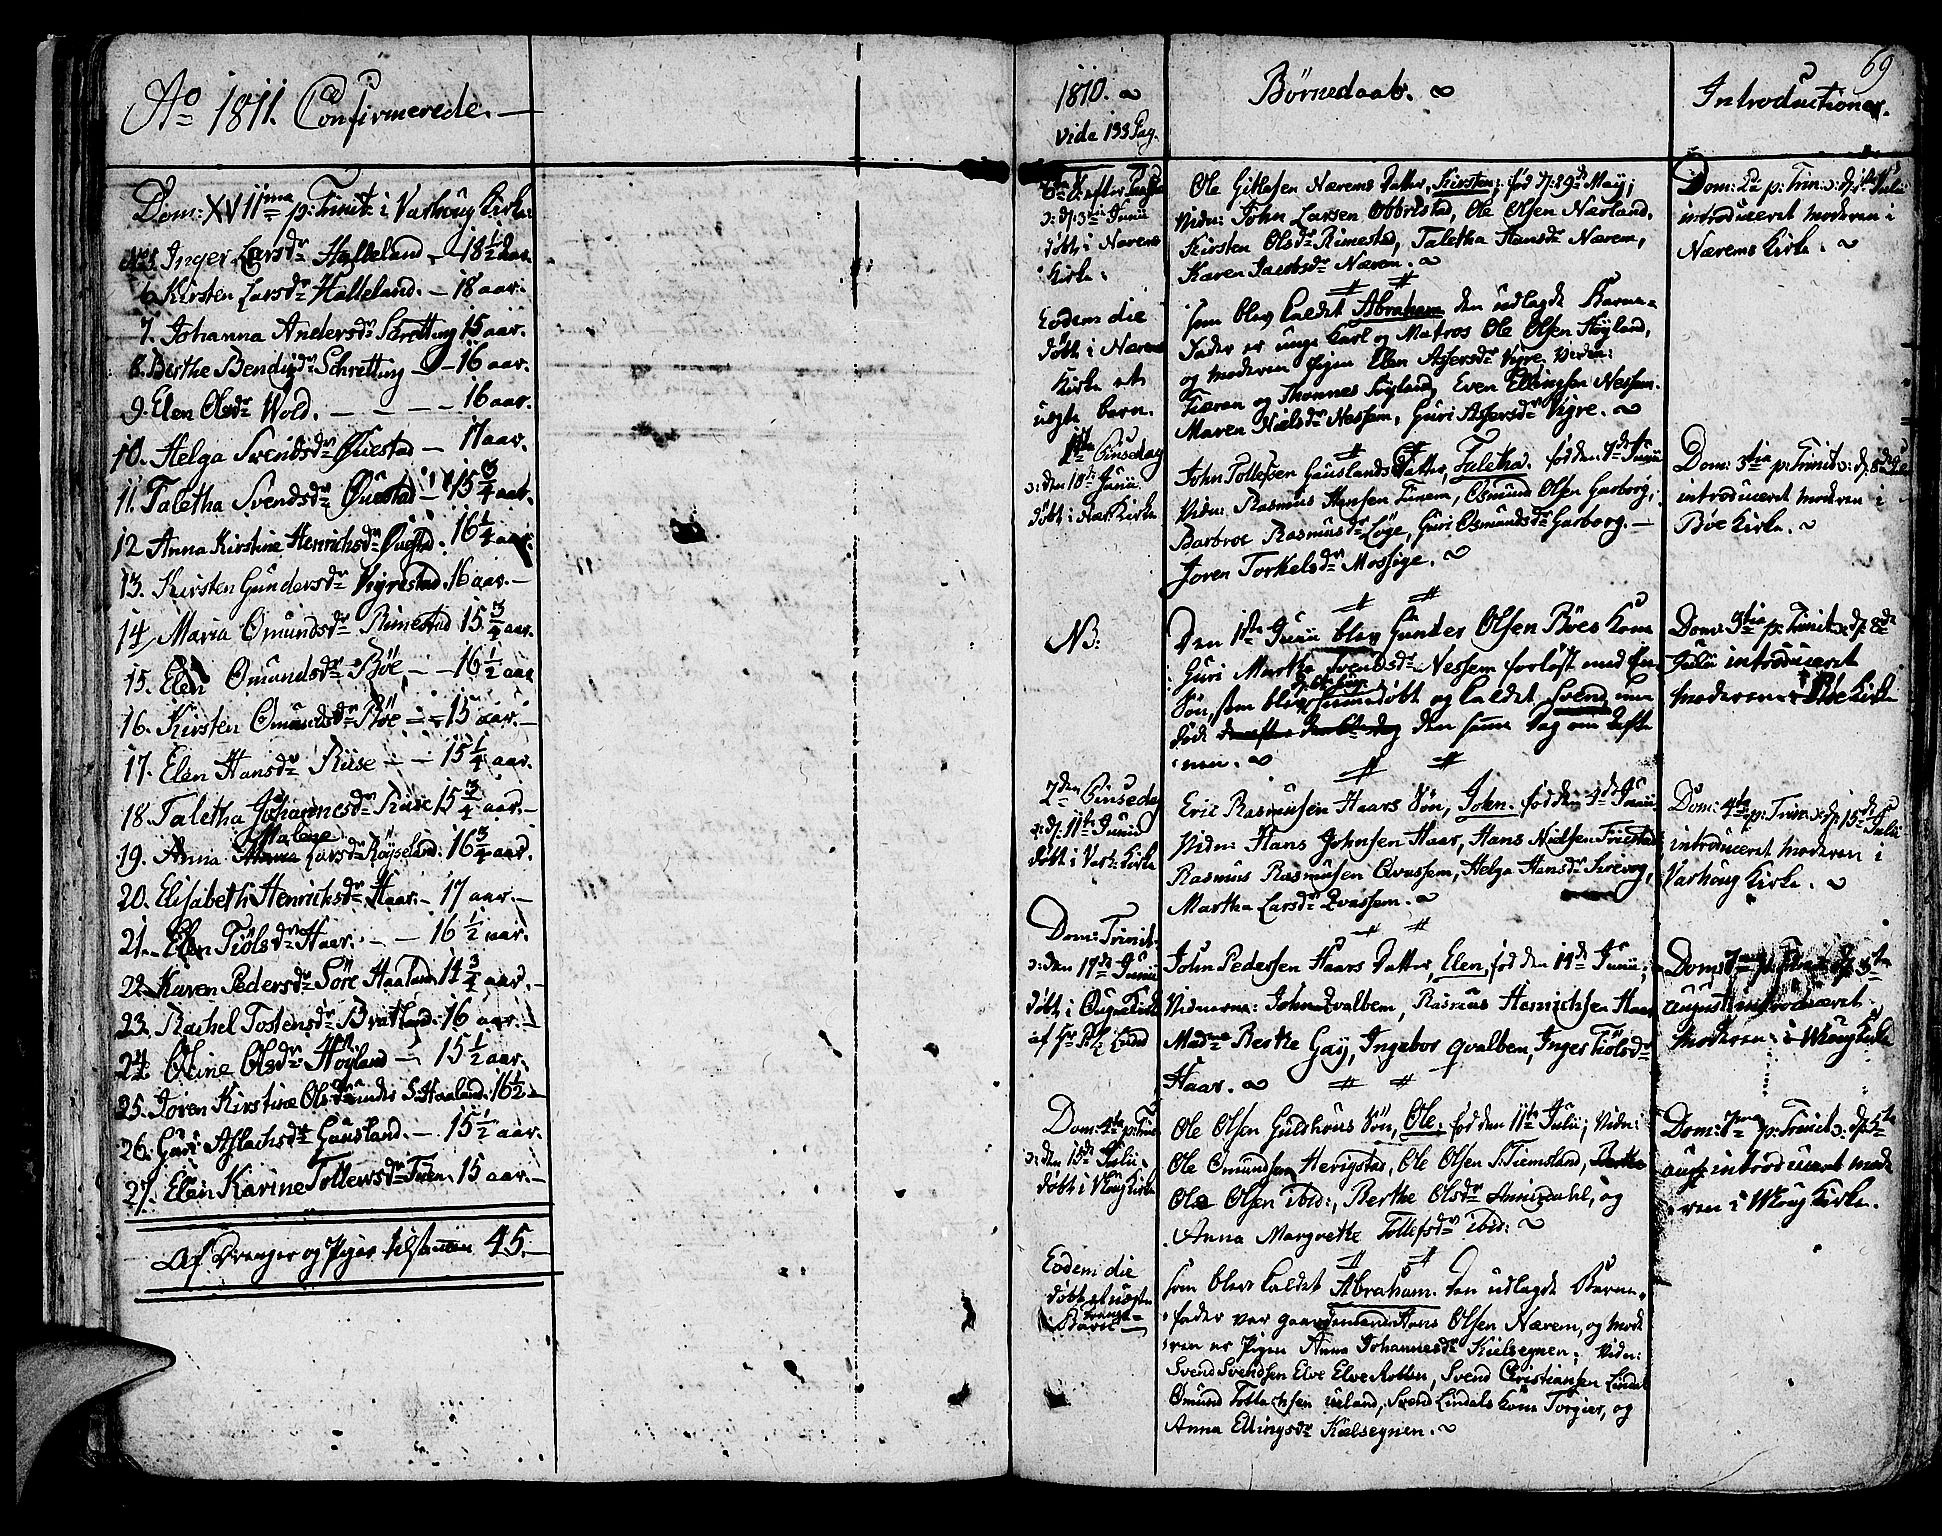 Ao 1811. Confirmerede. —
Dom: XVIIma p: Trinit: i Varhoug Kirke:
Inger Larsdr Halleland — 18 1/2 aar.
6. Kirsten Larsdr Halleland. — 18 aar.
7. Johanna Andersdr Schretting 15 aar.
8. Berthe Bendixdr Schretting — 16 aar.
9. Elen Olsdr Wold. — — — 16 aar.
10. Helga Svendsdr Øuestad — 17 aar.
11. Taletha Svendsdr Øuestad — 15 3/4 aar.
12 Anna Kirstine Henrichsdr Øuestad. 16 1/4 aar.
13. Kirsten Gundersdr Vigrestad. 16 aar. —
14 Maria Omundsdr Rimestad 15 3/4 aar.
15. Elen Omundsdr Böe — — 16 1/2 aar
16. Kirsten Omundsdr Böe — 15 aar. —
17. Elen Hansdr Riise — — 15 1/4 aar.
18. Taletha Johannesdr Riise 15 3/4 aar. —
Malene
19. Anna Larsdr Röyseland. 16 3/4 aar.
20. Elisabeth Henrichsdr Haar. — 17 aar. —
21. Elen Tiölsdr Haar. — — 16 1/2 aar.
22. Karen Pedersdr Söre Haaland 14 3/4 aar. —
23. Rachel Tostensdr Bratland. 16 aar. —
24. Oline Olsdr Höyland — 15 1/2 aar.
25. Joren Kirstine Olsdr S: Haaland. 16 1/2 —
26. Guri Aslachsdr Gausland. — 15 1/2 aar.
27. Elen Karine Tollevsdr Tuen. 15 aar. —
Af Drenger og Piger tilsammen 45. —
69
1810. ~
vide 133 Pag.
Börnedaab. ~
Introductioner.
6te S. efter Paaske
ɔ: d: 3die Junii
döbt i Nærems
Kirke.
Ole Gitlesen Nærems Datter, Kirsten; föd d: 29de May;
Vidn: John Larsen Obbrestad, Ole Olsen Nærland,
Kirsten Olsdr Rimestad, Taletha Hansdr Nærem,
Karen Jacobsdr Nærem. ~
Dom: 2da p: Trin: ɔ: d: 1ste Julii
introduceret moderen i
Nærems Kirke. ~
Eodem die
döbt i Nærems
Kirke et
uægte barn.
som blev kaldet Abraham den udlagde Barne-
fader er unge Karl og Matros Ole Olsen Höyland,
og moderen Pigen Elen Assersdr Vigre. Vidn:
Tiæren og Thonnes Fugland, Even Ellingsen Nessem.
Maren Nielsdr Nessem, Guri Assersdr Vigre. ~
1ste Pinsedag
ɔ: den 10de Junii
döbt i Nær Kirke
John Tollefsen Gauslands Datter, Taletha. föd den 7de Junii
Vidn: Rasmus Hansen Tunem, Osmund Olsen Garborg,
Barbroe Rasmusdr Löge, Guri Osmundsdr Garborg. —
Joren Torkelsdr Mossige. ~
Dom: 3tia p: Trinit: ɔ: d: 8de Julii
introduceret moderen i
Böe Kirke. ~
NB:
Den 1ste Junii blev Gunder Olsen Böes Kone
Guri Martha Svendsdr Nessem forlöst med en
Sön, som blev hiemmedöbt og kaldet Svend men
döde den samme dag om Afte
nen. ~
Dom: 3tia p: Trinit: ɔ: d: 8de
Julii introduceret
moderen i Böe Kirke
2den Pinsedag
ɔ: d: 11te Junii
döbt i Varh: Kirke
Eric Rasmusen Haars Sön, John. föd den 4de Junii.
Vidn: Hans Johnsen Haar, Hans Nielsen Friestad
Rasmus Rasmusen Qvassem, Helga Hansdr Sirevog,
Martha Larsdr Qvassem. ~
Dom: 4ta p: Trin: ɔ: d: 15de Julii
introduceret moderen i
Varhoug Kirke. ~
Dom: Trinit:
ɔ: den 17de Junii
döbt i Ougne Kirke
af Hr
John Pedersen Haars Datter, Elen, föd den 14de Junii;
Vidnerne: John Qvalbem, Rasmus Henrichsen Haar
Madme Berthe Gay, Ingebor Qvalben, Inger Tiölsdr
Haar. ~
Dom: 7ma p: Trinit: ɔ: d: 5te
august introduceret
Moderen i Woug Kirke
Dom: 4ta p: Trin:
ɔ: den 15de Julii
döbt i Woug Kirke
Ole Olsen Guldhous Sön, Ole, föd den 11te Julii; Vidn:
Ole Omundsen Herigstad, Ole Olsen S: Tiemsland, Berthe
Ole Olsen ibid:, Berthe Olsdr Anisdahl, og
Anna Margrethe Tollefsdr ibid: ~
Dom: 7ma p: Trinit: ɔ: d: 5te
aug: introduceret mode
ren i Woug Kirke.
Eodem die
döbt et uægte
Drenge-
Barn —
som blev kaldet Abraham. Den udlagde Barne-
fader var gaardmand Hans Olsen Nærem, og mode
ren er Pigen Anna Johannesdr Kielsegnen; Vidn:
Svend Svendsen Elve, Svend Christiansen Lindal
Omund Tollachsen ueland, Svend Lindals kone Torgier, og
Anna Ellingsdr Kielsegnen. ~